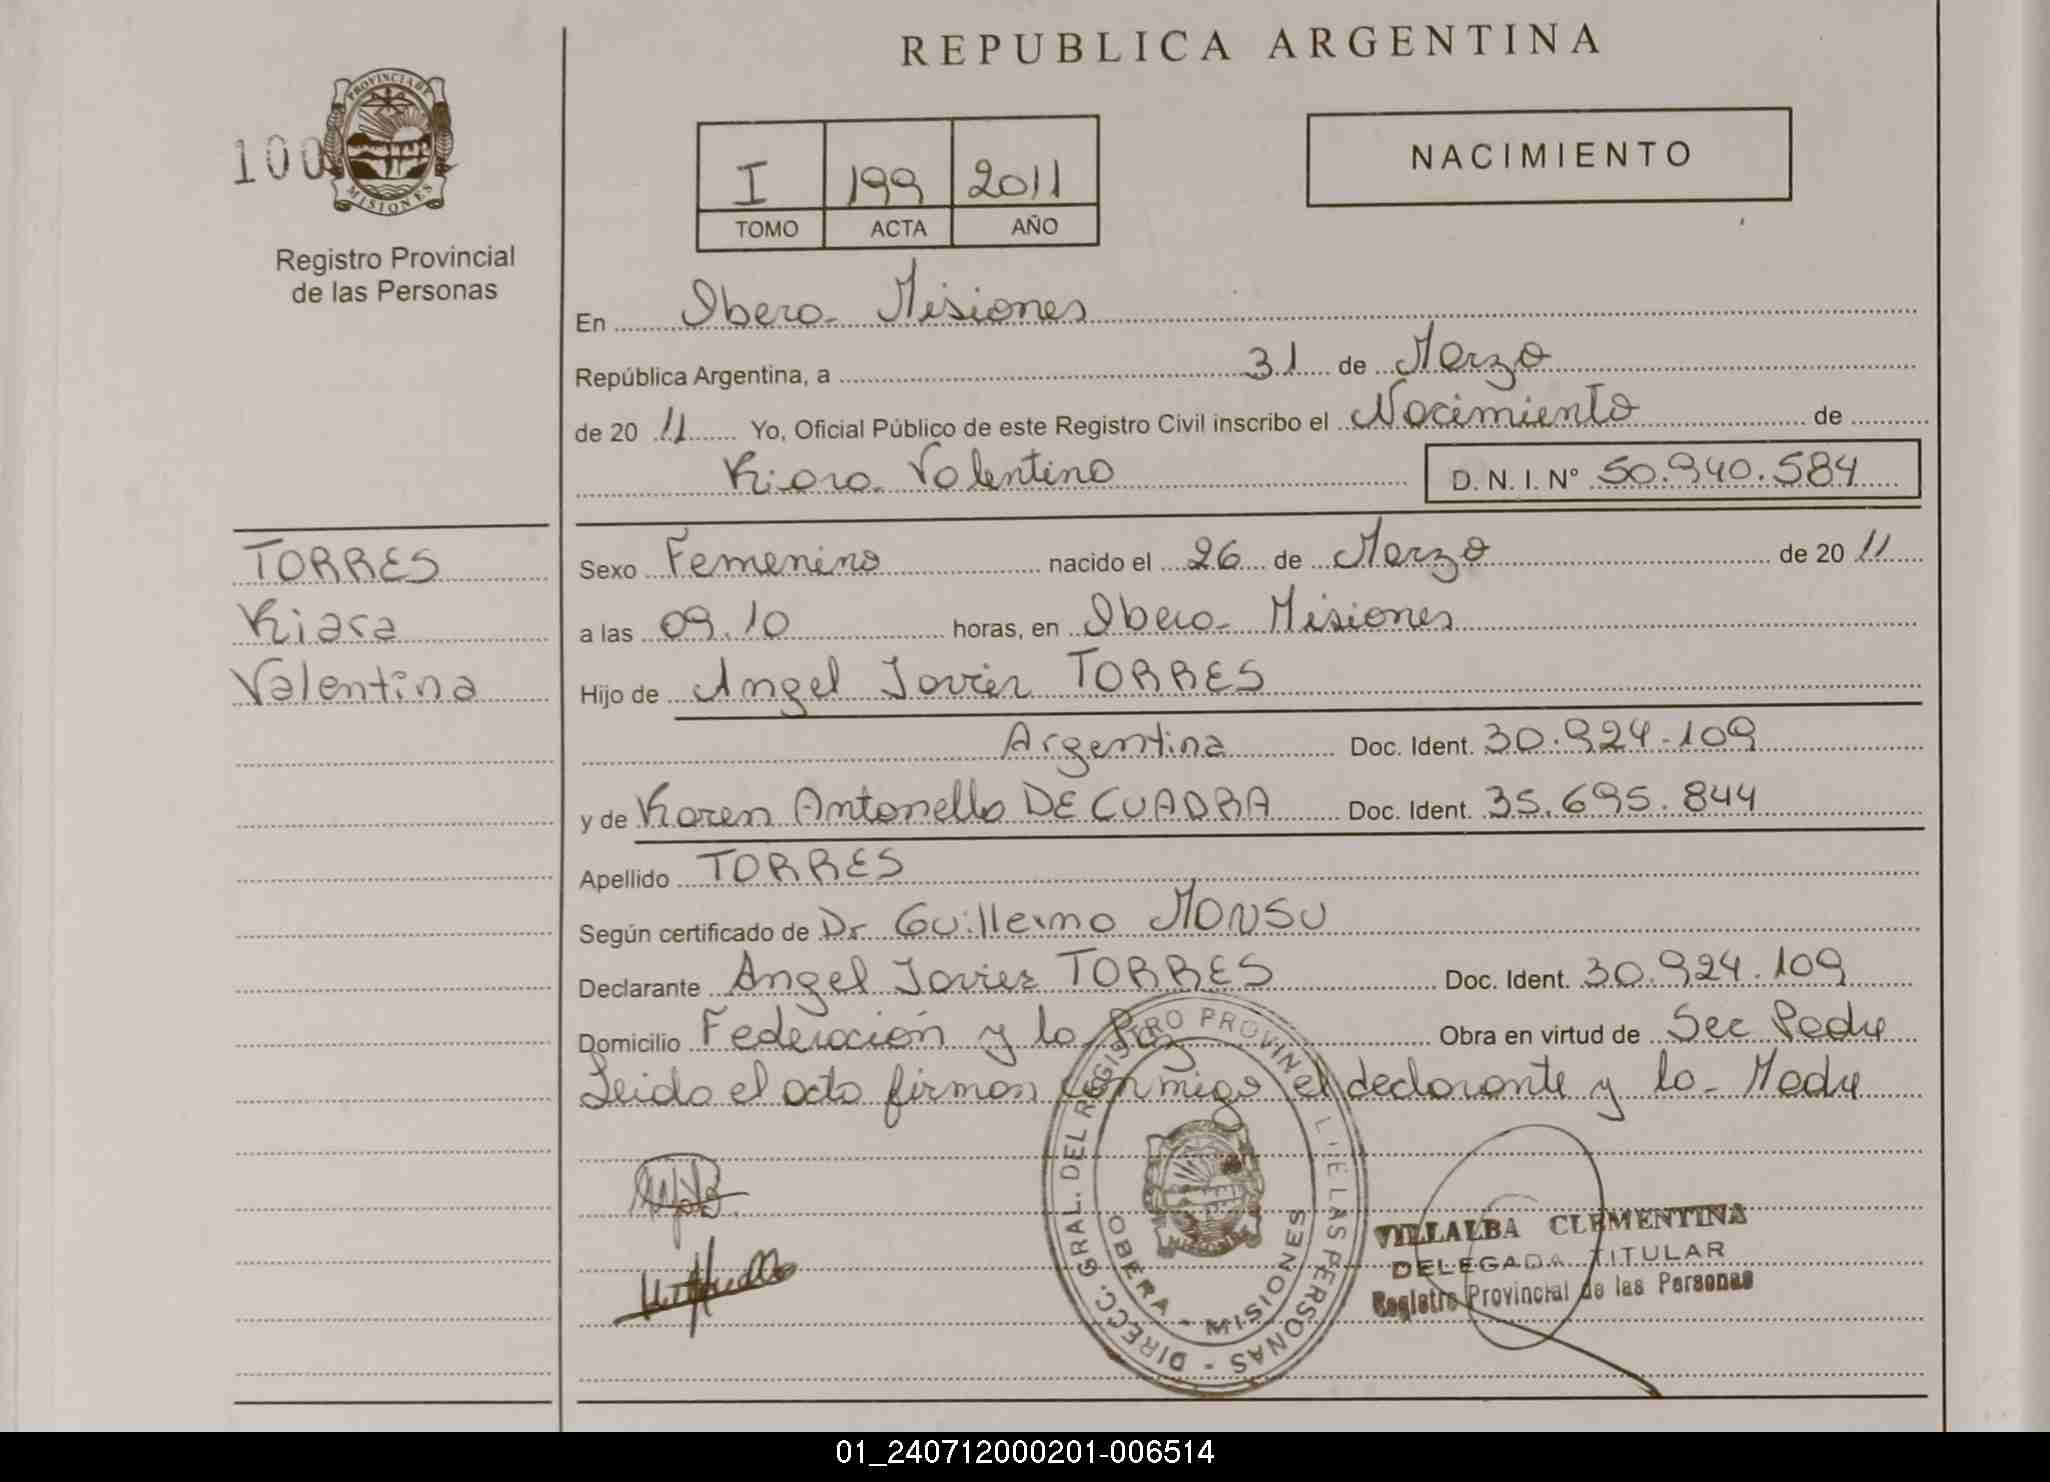 REPUBLICA ARGENTINA
100
PROVINCIA DE
MISIONES
Registro Provincial
de las Personas
I 199 2011
TOMO ACTA AÑO
NACIMIENTO
En Obera Misiones
República Argentina, a 31 de Marzo
de 20 11 Yo, Oficial Público de este Registro Civil inscribo el Nacimiento de
Kiara Valentina D. N. I. Nº 50.940.584
TORRES
Kiara
Valentina
Sexo Femenino nacido el 26 de Marzo de 20 11
a las 09.10 horas, en Obera Misiones
Hijo de Angel Javier TORRES
Argentina Doc. Ident. 30.924.109
y de Karen Antonella DE CUADRA Doc. Ident. 35.695.844
Apellido TORRES
Según certificado de Dr Guillermo MONSU
Declarante Angel Javier TORRES Doc. Ident. 30.924.109
Domicilio Federación y la Paz Obra en virtud de Sec Padre
Leida el acta firman conmigo el declarante y la Madre
DIRECC. GRAL. DEL REGISTRO PROVINCIAL DE LAS PERSONAS
OBERA - MISIONES
VILLALBA CLEMENTINA
DELEGADA TITULAR
Registro Provincial de las Personas
01_240712000201-006514